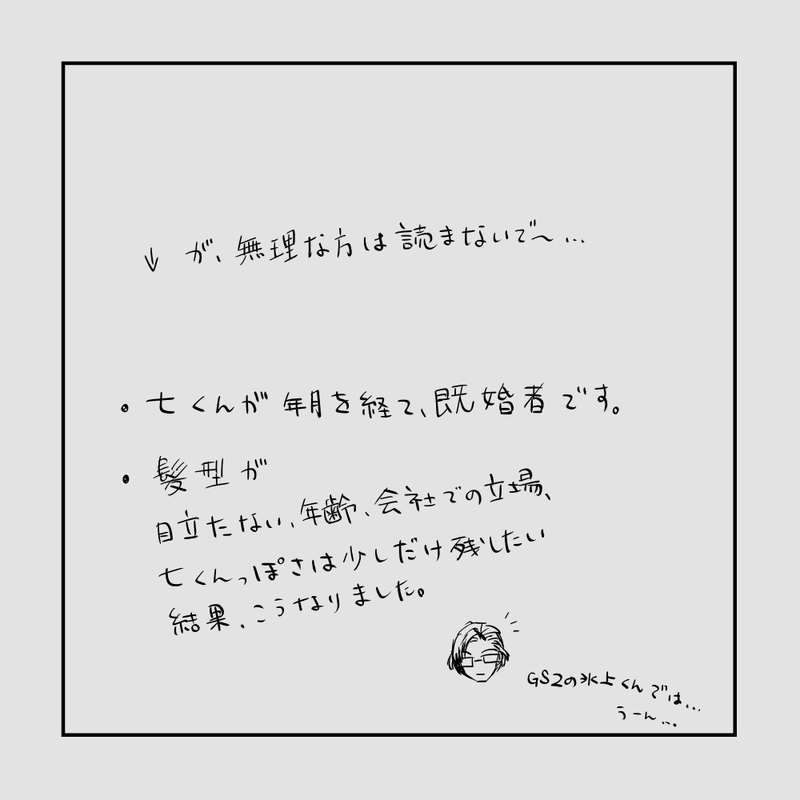 ↓ が、無理な方は読まないで〜…
・七くんが年月を経て、既婚者です。
・髪型が
目立たない、年齢、会社での立場、
七くんっぽさは少しだけ残したい
結果、こうなりました。
GS2の氷上くんでは…
うーん…。